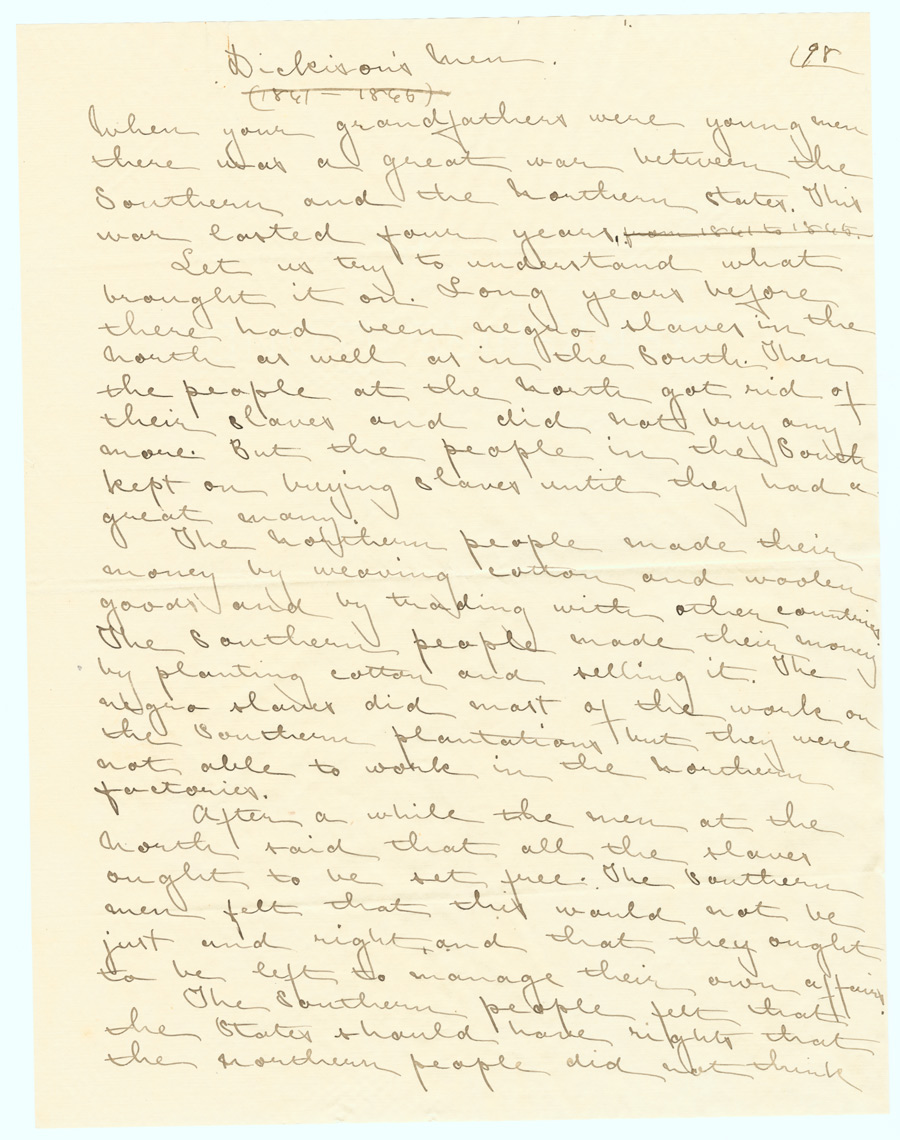 Dickison's Men.
198
(1861 - 1865)
When your grandfathers were young men
there was a great war between the
Southern and the Northern States. This
war lasted four years, from 1861 to 1865.
Let us try to understand what
brought it on. Long years before
there had been negro slaves in the
North as well as in the South. Then
the people at the North got rid of
their slaves and did not buy any
more. But the people in the South
kept on buying slaves until they had a
great many.
The Northern people made their
money by weaving cotton and woolen
goods and by trading with other countries
The Southern people made their money
by planting cotton and selling it. The
negro slaves did most of the work on
the Southern plantations but they were
not able to work in the Northern
factories.
After a while the men at the
North said that all the slaves
ought to be set free. The Southern
men felt that this would not be
just and right, and that they ought
to be left to manage their own affairs.
The Southern people felt that
the States should have rights that
the northern people did not think